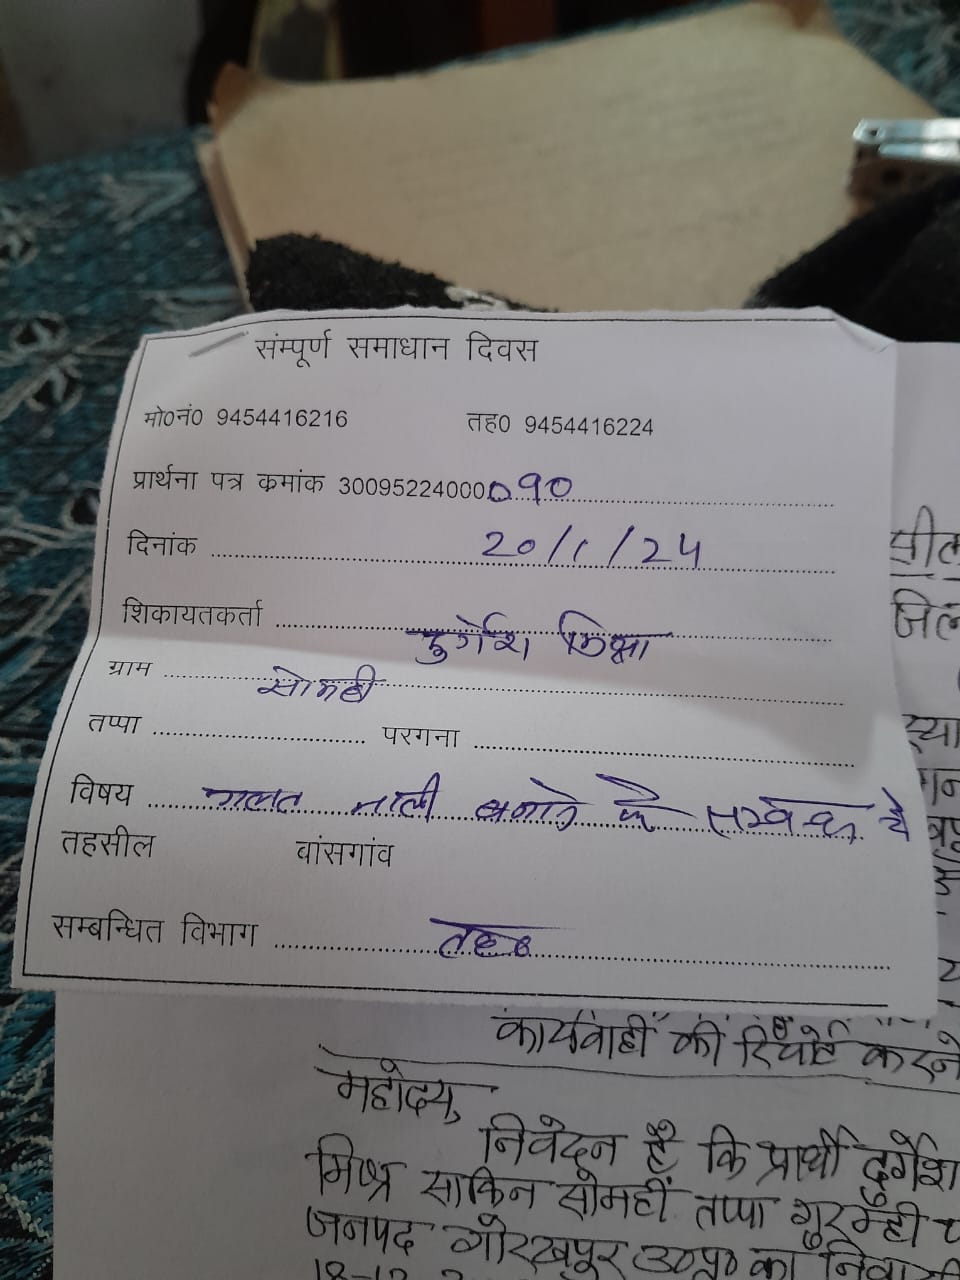 संम्पूर्ण समाधान दिवस
मो0नं0 9454416216 तह0 9454416224
प्रार्थना पत्र क्रमांक 30095224000090
दिनांक 20/1/24
शिकायतकर्ता दुर्गेश मिश्रा
ग्राम सोमही
तप्पा परगना
विषय गलत नाली बनाने के सम्बन्ध में
तहसील बांसगांव
सम्बन्धित विभाग तह0
कार्यवाही की रिपोर्ट करने
महोदय,
निवेदन है कि प्रार्थी दुर्गेश
मिश्र साकिन सोमहीं तप्पा गुरम्ही
जनपद गोरखपुर उ0प्र0 का